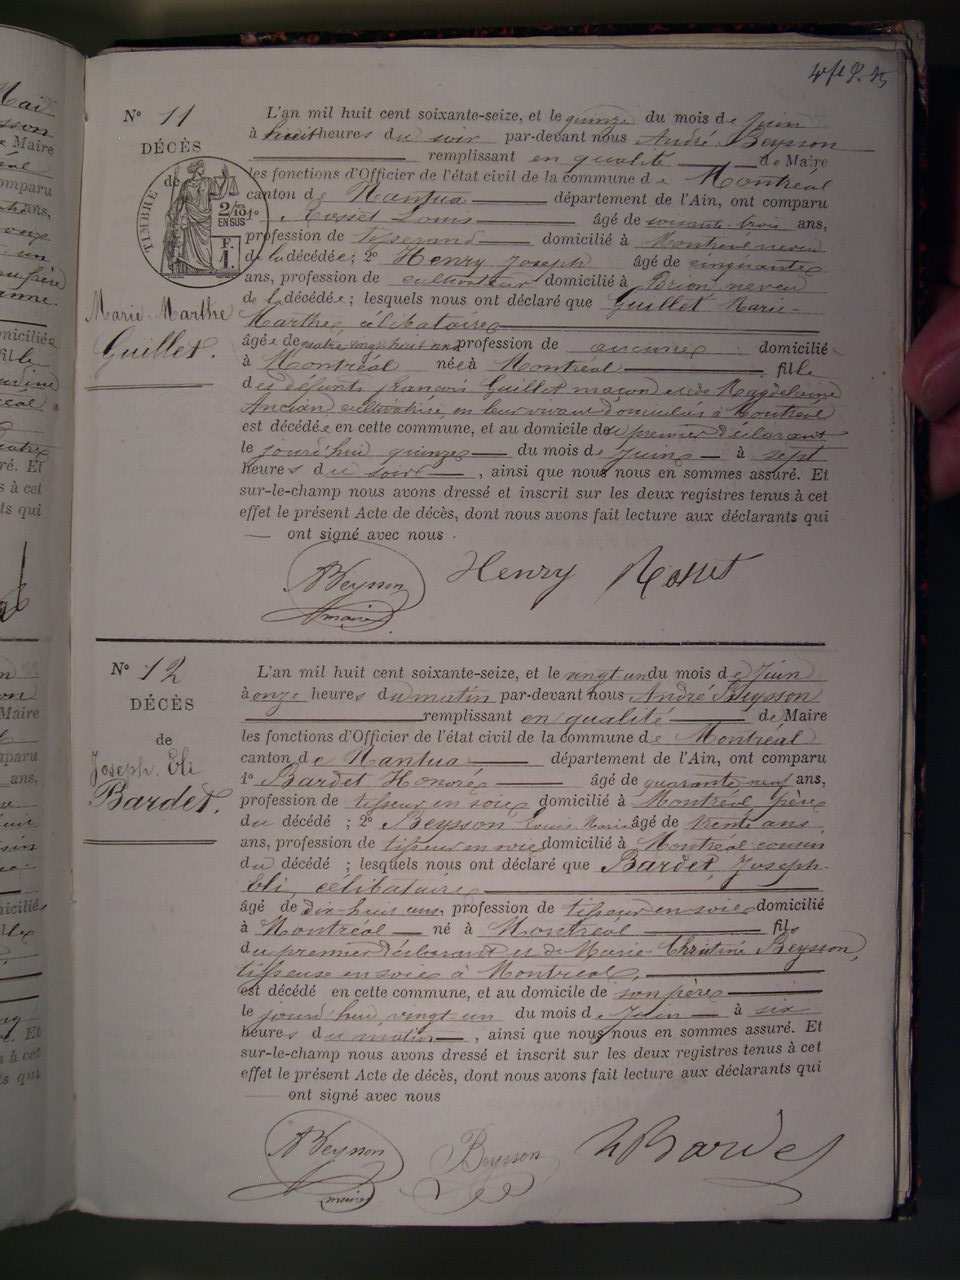 N° 11
DÉCÈS
de
TIMBRE
2/10
EN SUS
F.
1.
Marie-Marthe
Guillet.
L'an mil huit cent soixante-seize, et le quinze du mois de Juin
à huit heures du soir par-devant nous André Beysson
remplissant en qualité de Maire
les fonctions d'Officier de l'état civil de la commune de Montréal
canton de Nantua département de l'Ain, ont comparu
1° Rosset Louis âgé de soixante trois ans,
profession de tisserand domicilié à Montréal neveu
de la décédée; 2° Henry Joseph âgé de cinquante
ans, profession de cultivateur domicilié à Brion neveu
de la décédée; lesquels nous ont déclaré que Guillet Marie-
Marthe, célibataire
âgée de quatre vingt huit ans profession de aucune domiciliée
à Montréal née à Montréal fille
des défunts François Guillet maçon et de Magdeleine
Ancian cultivatrice, en leur vivant domiciliés à Montréal
est décédée en cette commune, et au domicile du premier déclarant
le jourd'hui quinze du mois de Juin à sept
heures du soir, ainsi que nous nous en sommes assuré. Et
sur-le-champ nous avons dressé et inscrit sur les deux registres tenus à cet
effet le présent Acte de décès, dont nous avons fait lecture aux déclarants qui
— ont signé avec nous.
ABeysson Henry Rosset
maire
N° 12
DÉCÈS
de
Joseph. Eli
Bardet.
L'an mil huit cent soixante-seize, et le vingt un du mois de Juin
à onze heures du matin par-devant nous André Beysson
remplissant en qualité de Maire
les fonctions d'Officier de l'état civil de la commune de Montréal
canton de Nantua département de l'Ain, ont comparu
1° Bardet Honoré âgé de quarante neuf ans,
profession de tisseur en soie domicilié à Montréal père
du décédé; 2° Beysson Louis Marie âgé de trente ans
ans, profession de tisseur en soie domicilié à Montréal cousin
du décédé; lesquels nous ont déclaré que Bardet, Joseph-
Eli, célibataire
âgé de dix-huit ans, profession de tisseur en soie domicilié
à Montréal né à Montréal fils
du premier déclarant et de Marie-Christine Beysson,
tisseuse en soie à Montréal,
est décédé en cette commune, et au domicile de son père
le jourd'hui vingt un du mois de Juin à six
heures du matin, ainsi que nous nous en sommes assuré. Et
sur-le-champ nous avons dressé et inscrit sur les deux registres tenus à cet
effet le présent Acte de décès, dont nous avons fait lecture aux déclarants qui
— ont signé avec nous
ABeysson Beysson hBardet
maire